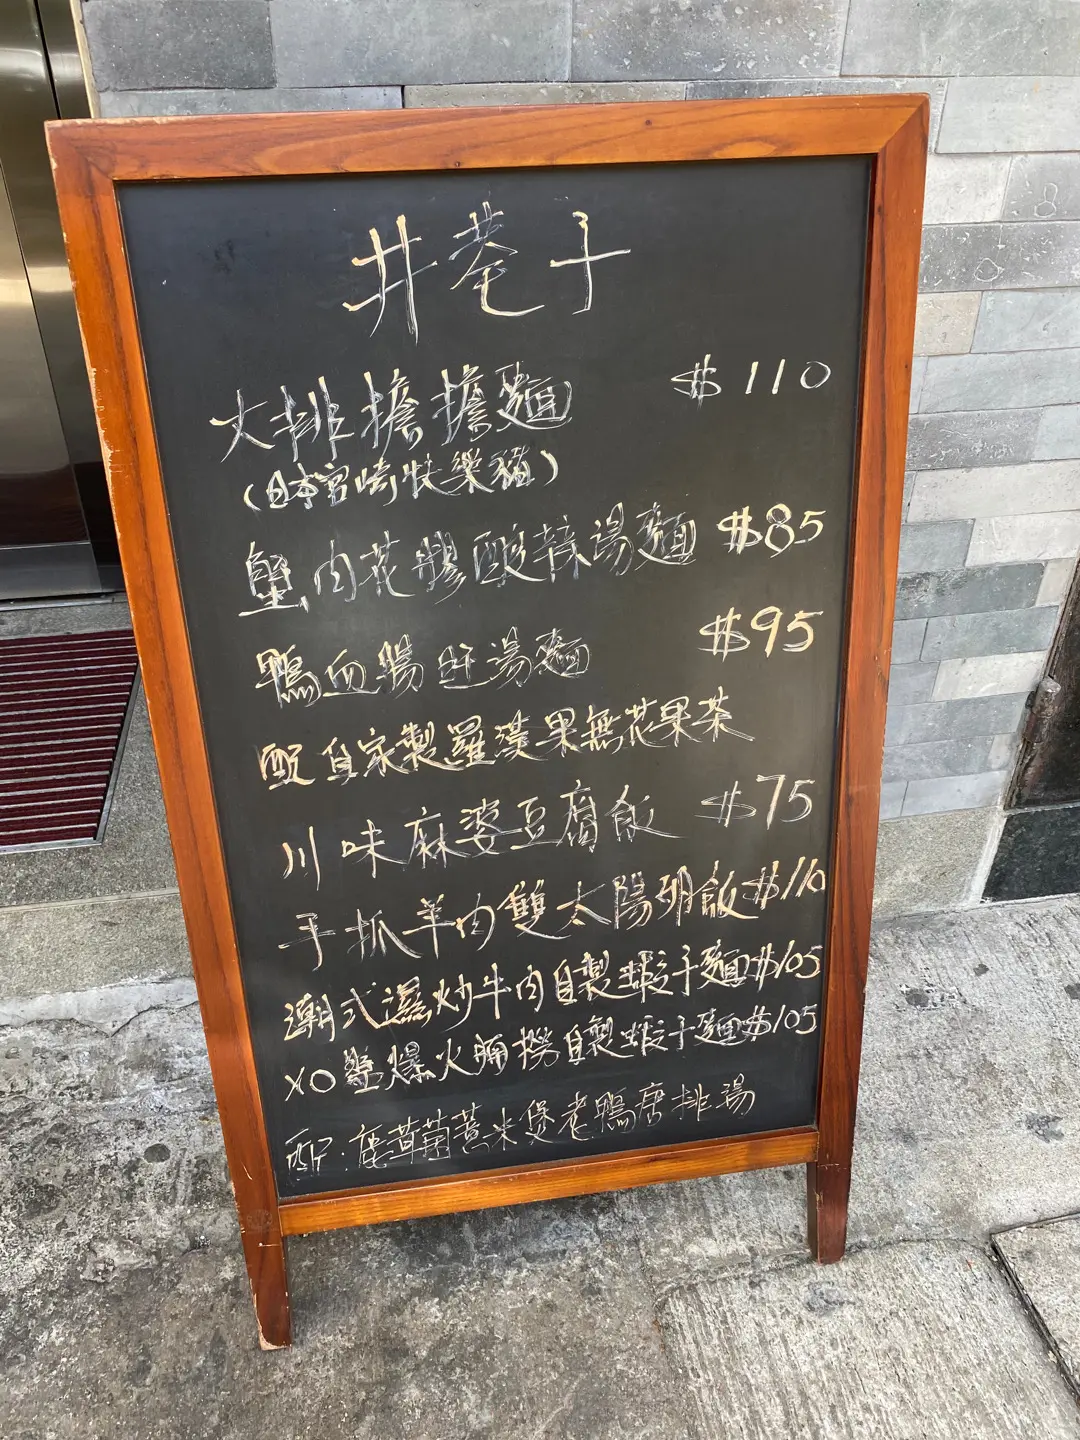 井巷子
大排擔擔麵 $110
(日本宮崎快樂豬)
蟹肉花膠酸辣湯麵 $85
鴨血腸肝湯麵 $95
配自家製羅漢果無花果茶
川味麻婆豆腐飯 $75
手抓羊肉雙太陽卵飯 $110
潮式濕炒牛肉自製蝦子麵 $105
XO醬爆火腩撈自製蝦子麵 $105
配:鹿茸菌薏米煲老鴨唐排湯